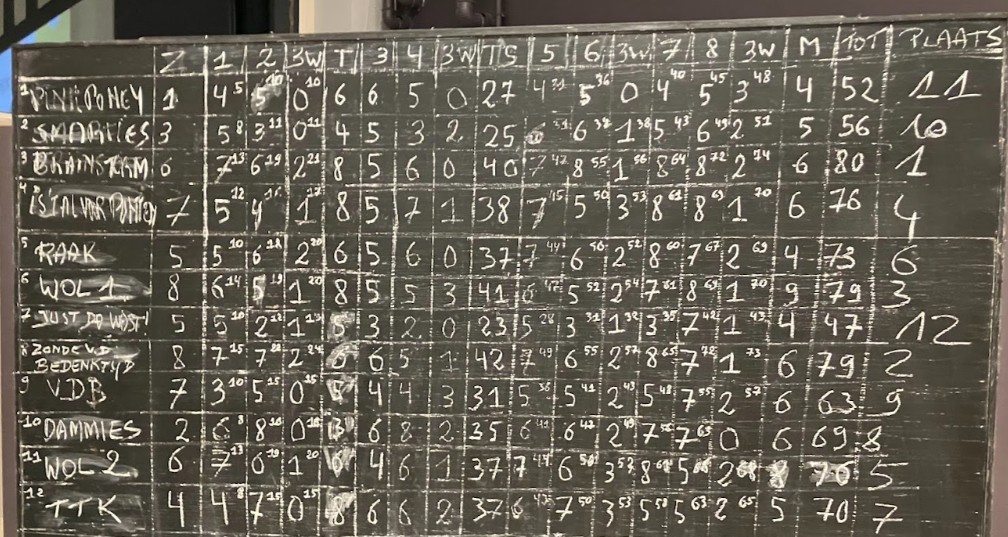 Z 1 2 3W T 3 4 3W TS 5 6 3W 7 8 3W M TOT PLAATS
1 PINK PONEY 1 4 5 5 10 0 10 6 6 5 0 27 4 31 5 36 0 4 40 5 45 3 48 4 52 11
2 3 5 8 3 11 0 11 4 5 3 2 25 6 31 6 37 1 38 5 43 6 49 2 51 5 56 10
3 6 7 13 6 19 2 21 8 5 6 0 40 7 47 8 55 1 56 8 64 8 72 2 74 6 80 1
4 7 5 12 4 16 1 17 8 5 7 1 38 7 45 5 50 3 53 8 61 8 69 1 70 6 76 4
5 RAAK 5 5 10 6 18 2 20 6 5 6 0 37 7 44 6 50 2 52 8 60 7 67 2 69 4 73 6
6 WOL 1 8 6 14 5 19 1 20 8 5 5 3 41 6 47 5 52 2 54 7 61 8 69 1 70 9 79 3
7 JUST DO 5 5 10 2 12 1 13 5 3 2 0 23 5 28 3 31 1 32 3 35 7 42 1 43 4 47 12
8 ZONDE V.D.
BEDENKTYD 8 7 15 7 22 2 24 6 6 5 1 42 7 49 6 55 2 57 8 65 7 72 1 73 6 79 2
9 VDB 7 3 10 5 15 0 15 4 4 3 31 5 36 5 41 2 43 5 48 7 55 2 57 6 63 9
10 DAMMIES 2 6 8 8 16 0 16 3 6 8 2 35 6 41 6 47 2 49 7 56 7 63 0 6 69 8
11 WOL 2 6 7 13 6 19 1 20 6 4 6 1 37 7 44 6 50 3 53 8 61 5 66 2 68 8 76 5
12 TTK 4 4 8 7 15 0 15 8 6 6 2 37 6 43 7 50 3 53 5 58 5 63 2 65 5 70 7